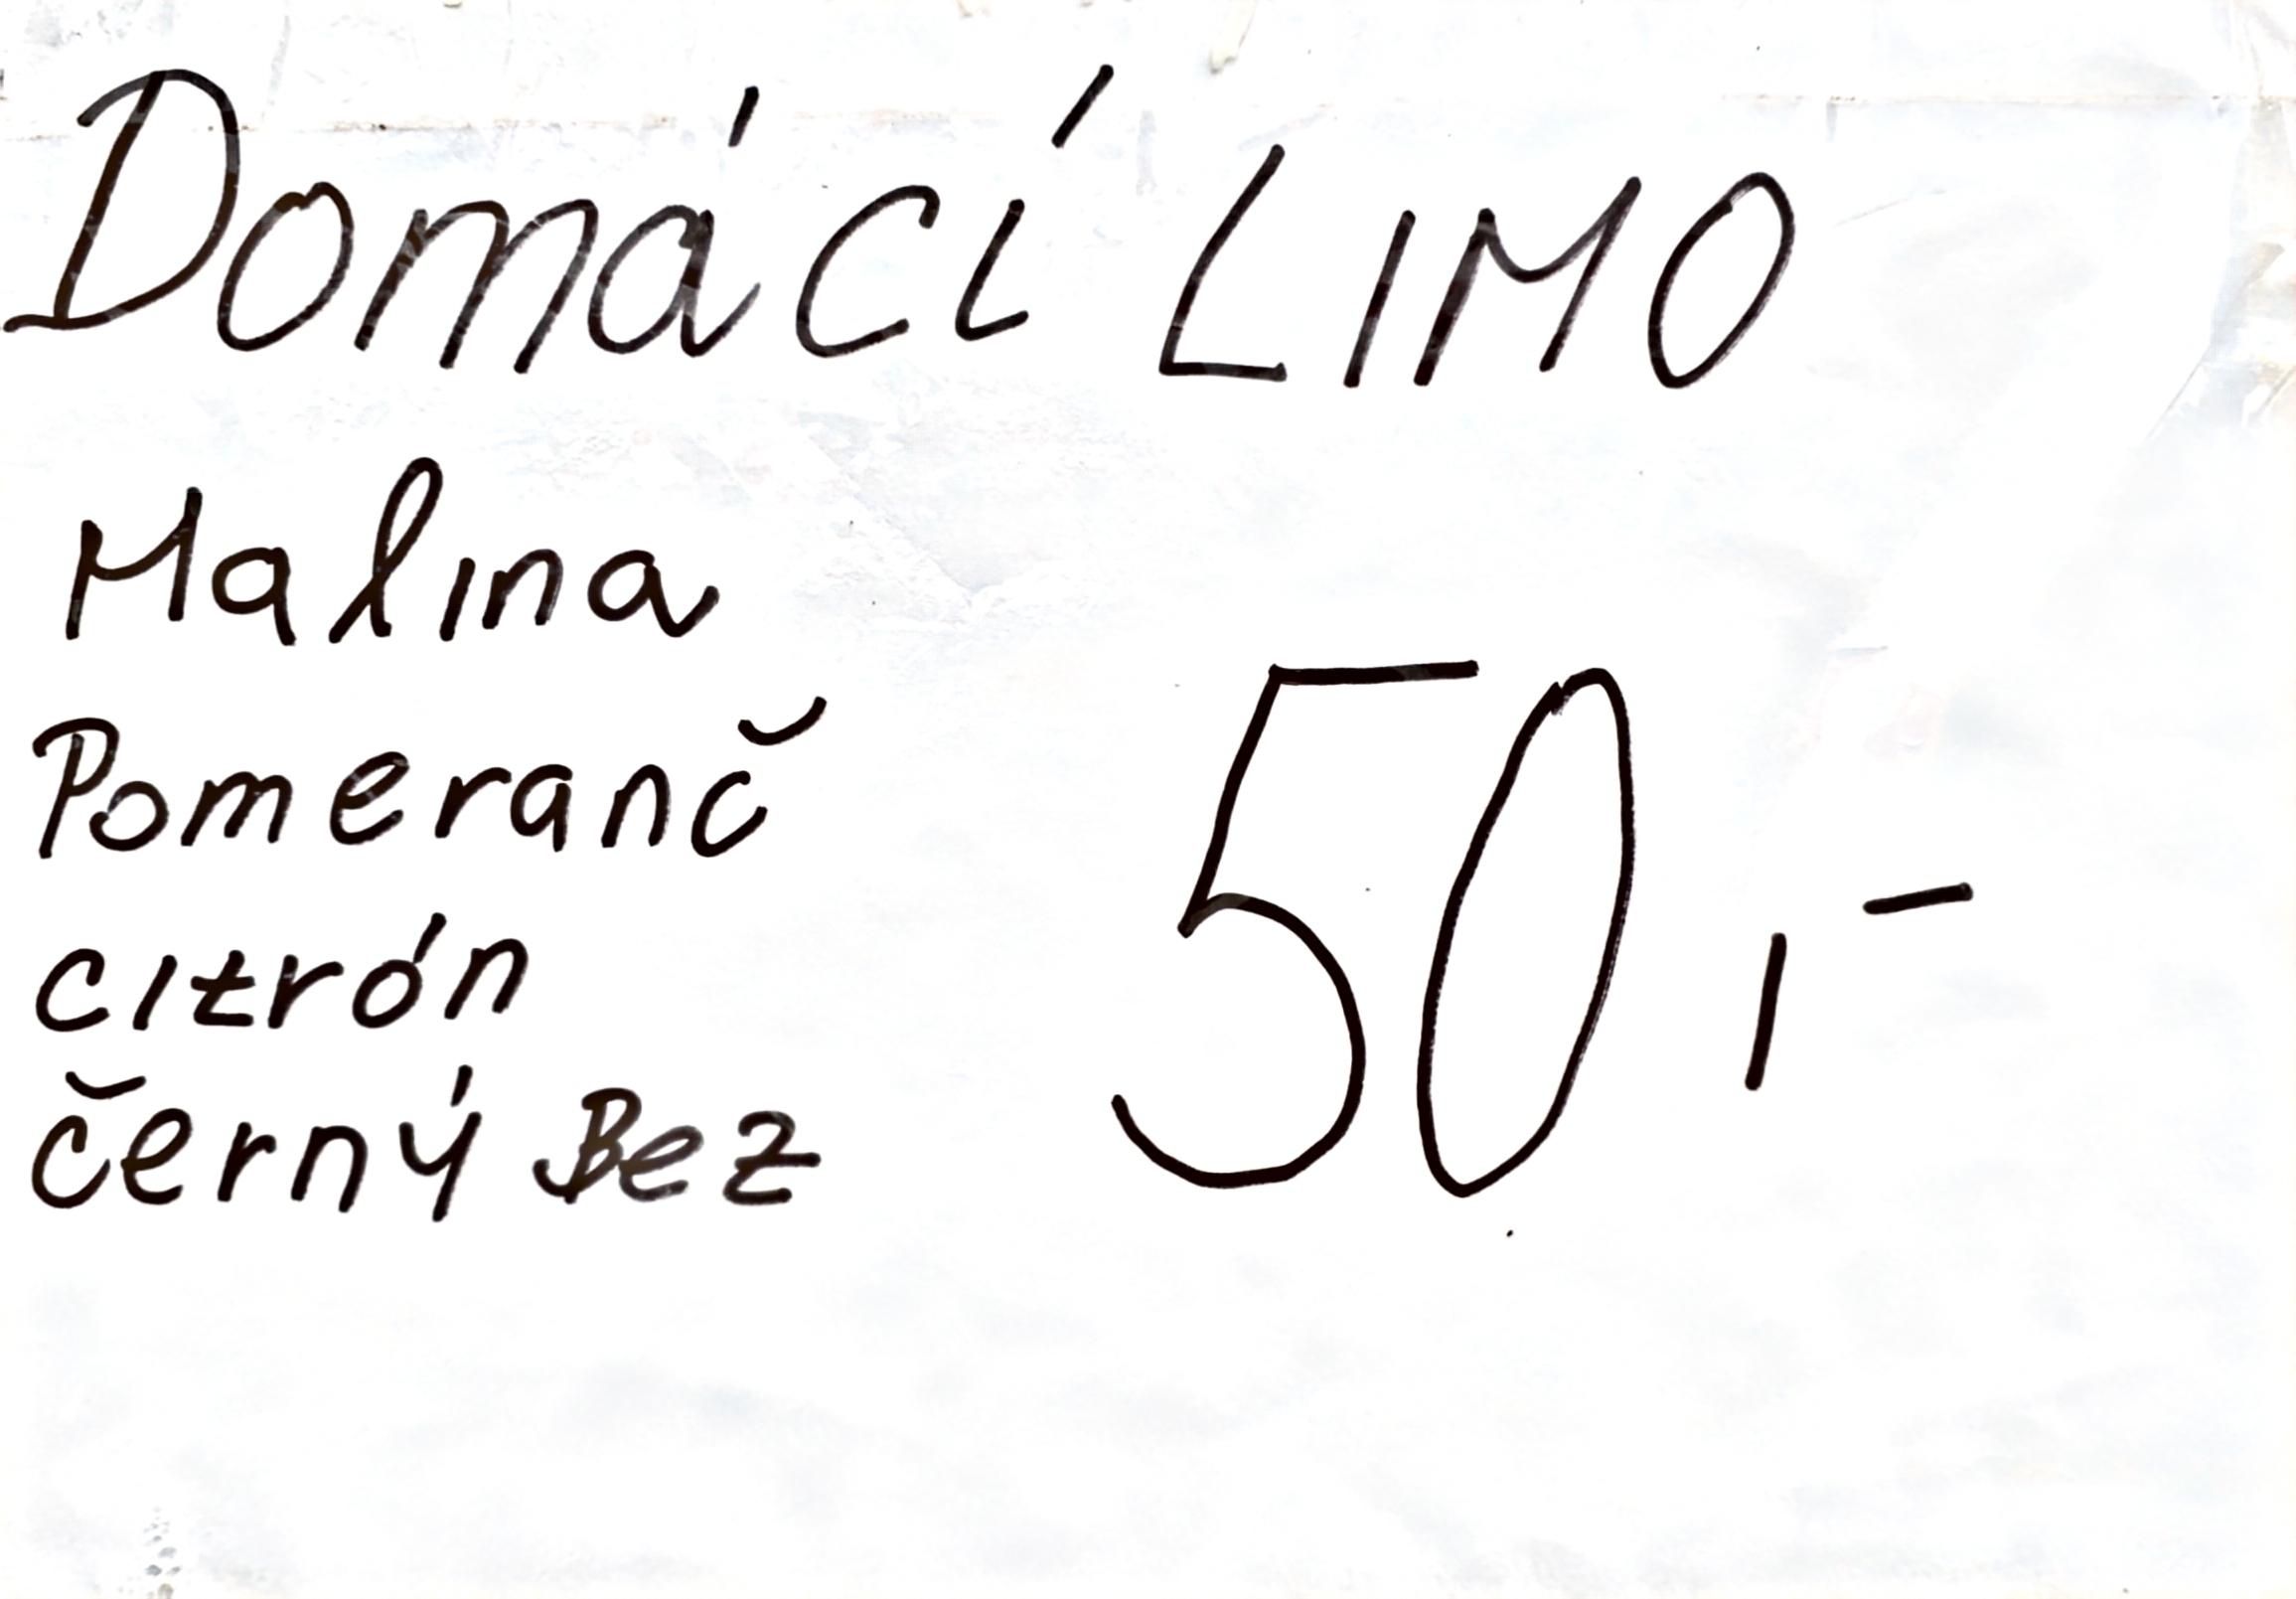 Domácí LIMO
Malina
Pomeranč
citrón
černý Bez
50,-